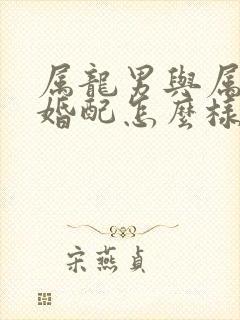 属龍男與属
婚配怎麼樣
宋燕貞